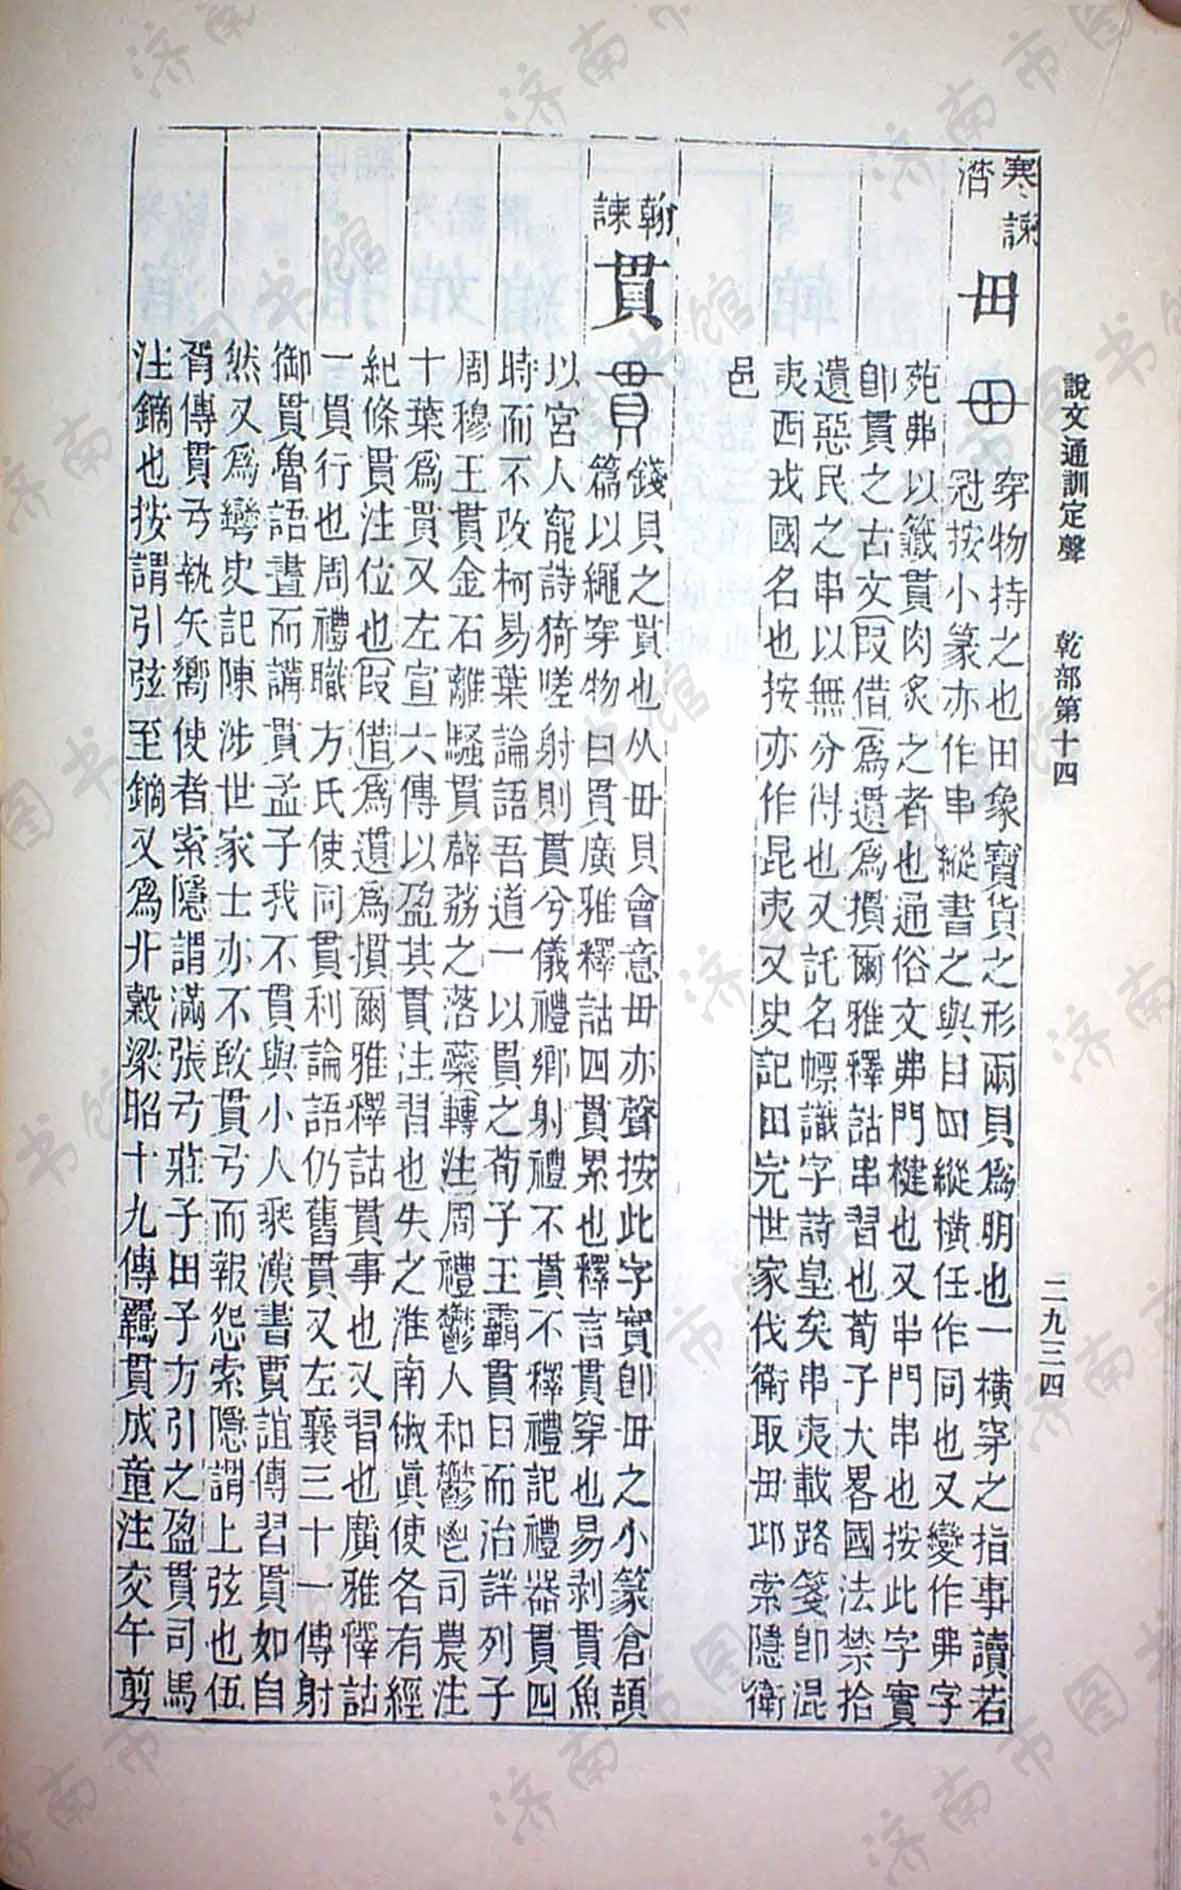 說文通訓定聲 乾部第十四 二九三四
寒諫
潸
毌
穿物持之也田象寶貨之形兩貝爲朙也一橫穿之指事讀若
冠按小篆亦作串縱書之與目四縱橫任作同也又變作弗字
苑弗以籤貫肉炙之者也通俗文弗門楗也又串門串也按此字實
卽貫之古文叚借爲遺爲摜爾雅釋詁串習也荀子大畧國法禁拾
遺惡民之串以無分得也又託名幖識字詩皇矣串夷載路箋卽混
夷西戎國名也按亦作昆夷又史記田完世家伐衞取毌邱索隱衞
邑
翰諫
貫
錢貝之貫也从毌貝會意毌亦聲按此字實卽毌之小篆倉頡
篇以繩穿物曰貫廣雅釋詁四貫累也釋言貫穿也易剥貫魚
以宮人寵詩猗嗟射則貫兮儀禮鄉射禮不貫不釋禮記禮器貫四
時而不改柯易葉論語吾道一以貫之荀子王霸貫日而治詳列子
周穆王貫金石離騷貫薜荔之落蘂轉注周禮鬱人和鬱鬯司農注
十葉爲貫又左宣六傳以盈其貫注習也失之淮南俶眞使各有經
紀條貫注位也叚借爲遺爲摜爾雅釋詁貫事也又習也廣雅釋詁
一貫行也周禮職方氏使同貫利論語仍舊貫又左襄三十一傳射
御貫魯語晝而講貫孟子我不貫與小人乘漢書賈誼傳習貫如自
然又爲彎史記陳涉世家士亦不敢貫弓而報怨索隱謂上弦也伍
胥傳貫弓執矢嚮使者索隱謂滿張弓莊子田子方引之盈貫司馬
注鏑也按謂引弦至鏑又爲丱榖梁昭十九傳羈貫成童注交午剪